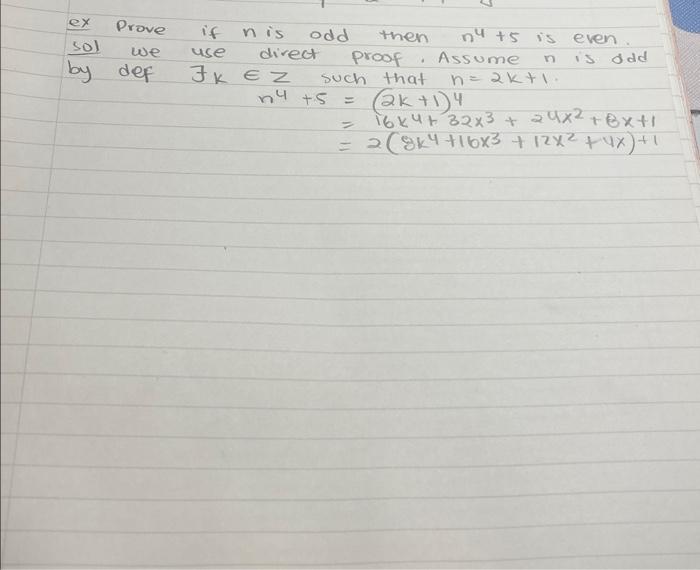 ex Prove if n is odd then n⁴ +5 is even.
sol we use direct proof. Assume n is odd
by def ∃k ∈ Z such that n = 2k+1.
n⁴ +5 = (2k+1)⁴
= 16k⁴ + 32x³ + 24x² + 8x+1
= 2(8k⁴+16x³ + 12x² + 4x)+1